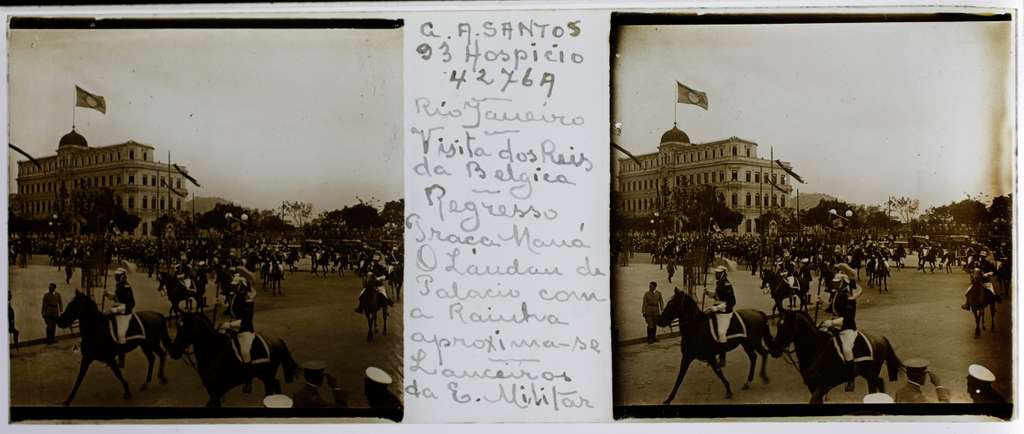 G. A. SANTOS
93 Hospicio
4276A
Rio Janeiro
Visita dos Reis
da Belgica
Regresso
Praça Mauá
O Landau de
Palacio com
a Rainha
aproxima-se
Lanceiros
da E. Militar